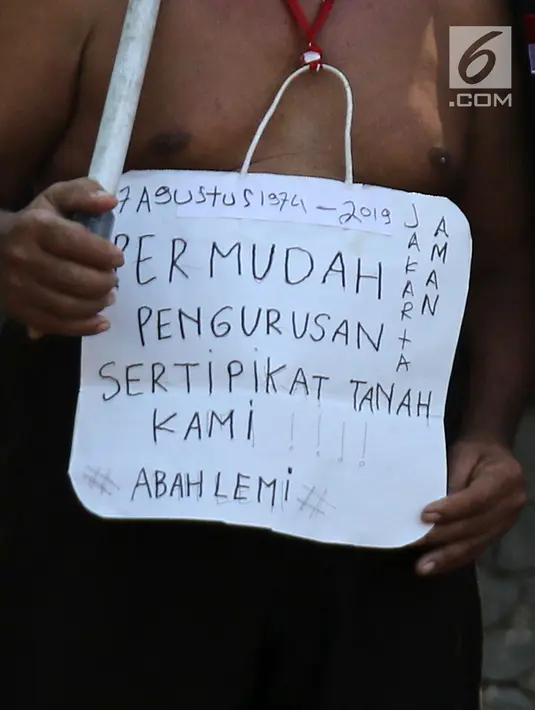 6
.COM
7 AGUSTUS 1974 - 2019
PERMUDAH
PENGURUSAN
SERTIPIKAT TANAH
KAMI !!!!
# ABAH LEMI #
JAKARTA
AMAN